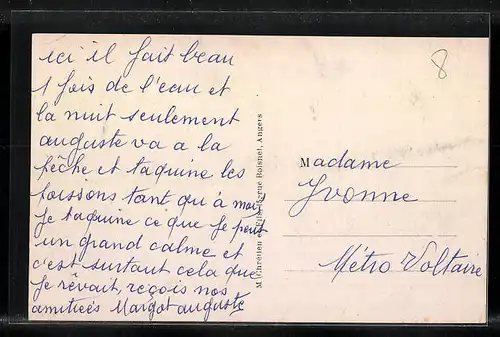 ici il fait beau
1 fois de l'eau et
la nuit seulement
auguste va a la
pêche et taquine les
poissons tant qu'à moi
Je taquine ce que Je peut
un grand calme et
c'est surtant cela que
Je rêvait, reçois nos
amitiés Margot auguste
M Chrétien et Fils, rue Boisnet, Angers
8
Madame
Yvonne
Métro Voltaire